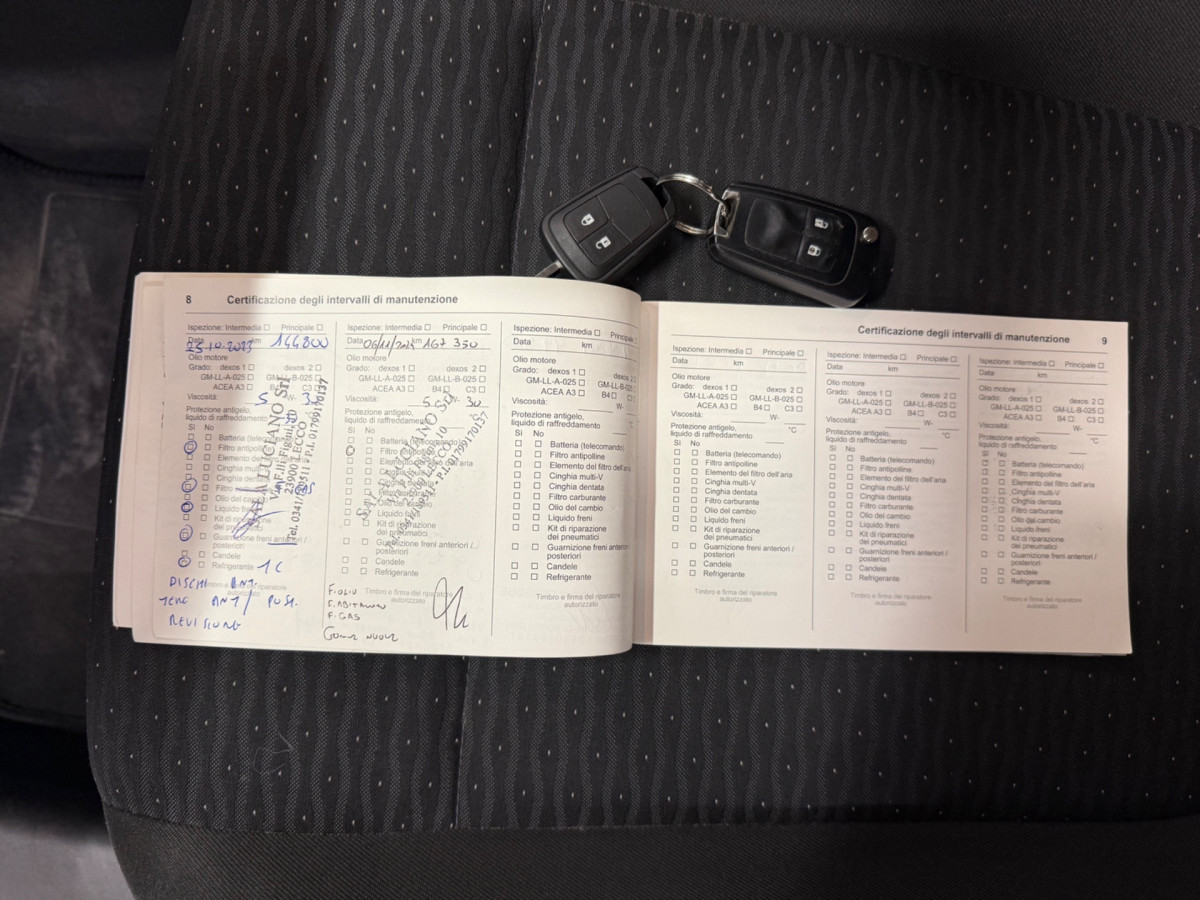 8 Certificazione degli intervalli di manutenzione
Ispezione: Intermedia Principale
Data km
25.10.2023 144800
Olio motore
Grado: dexos 1 dexos 2
GM-LL-A-025 GM-LL-B-025
ACEA A3 B4 C3
Viscosità: 5 W- 30
Protezione antigelo,
liquido di raffreddamento:
Sì No
Batteria (telecomando)
Filtro antipolline
Elemento del filtro dell'aria
Cinghia multi-V
Cinghia dentata
Filtro carburante
Olio del cambio
Liquido freni
Kit di riparazione
dei pneumatici
Guarnizione freni anteriori /
posteriori
Candele
Refrigerante
Timbro e firma del riparatore
autorizzato
LUCIANO Srl
23900 LECCO
P.I. 01799170137
DISCHI ANT.
ANT/ POST.
REVISIONE
Ispezione: Intermedia Principale
Data km 167 350
Olio motore
Grado: dexos 1 dexos 2
GM-LL-A-025 GM-LL-B-025
ACEA A3 B4 C3
Viscosità: 5 W- 30
Protezione antigelo,
liquido di raffreddamento:
°C
Sì No
Batteria (telecomando)
Filtro antipolline
Elemento del filtro dell'aria
Cinghia multi-V
Cinghia dentata
Filtro carburante
Olio del cambio
Liquido freni
Kit di riparazione
dei pneumatici
Guarnizione freni anteriori /
posteriori
Candele
Refrigerante
Timbro e firma del riparatore
autorizzato
F. OLIO
F. ABITACOLO
F. GAS
GOMME NUOVE
Ispezione: Intermedia Principale
Data km
Olio motore
Grado: dexos 1 dexos 2
GM-LL-A-025 GM-LL-B-025
ACEA A3 B4 C3
Viscosità: W-
Protezione antigelo,
liquido di raffreddamento: °C
Sì No
Batteria (telecomando)
Filtro antipolline
Elemento del filtro dell'aria
Cinghia multi-V
Cinghia dentata
Filtro carburante
Olio del cambio
Liquido freni
Kit di riparazione
dei pneumatici
Guarnizione freni anteriori /
posteriori
Candele
Refrigerante
Timbro e firma del riparatore
autorizzato
Certificazione degli intervalli di manutenzione 9
Ispezione: Intermedia Principale
Data km
Olio motore
Grado: dexos 1 dexos 2
GM-LL-A-025 GM-LL-B-025
ACEA A3 B4 C3
Viscosità: W-
Protezione antigelo,
liquido di raffreddamento: °C
Sì No
Batteria (telecomando)
Filtro antipolline
Elemento del filtro dell'aria
Cinghia multi-V
Cinghia dentata
Filtro carburante
Olio del cambio
Liquido freni
Kit di riparazione
dei pneumatici
Guarnizione freni anteriori /
posteriori
Candele
Refrigerante
Timbro e firma del riparatore
autorizzato
Ispezione: Intermedia Principale
Data km
Olio motore
Grado: dexos 1 dexos 2
GM-LL-A-025 GM-LL-B-025
ACEA A3 B4 C3
Viscosità: W-
Protezione antigelo,
liquido di raffreddamento: °C
Sì No
Batteria (telecomando)
Filtro antipolline
Elemento del filtro dell'aria
Cinghia multi-V
Cinghia dentata
Filtro carburante
Olio del cambio
Liquido freni
Kit di riparazione
dei pneumatici
Guarnizione freni anteriori /
posteriori
Candele
Refrigerante
Timbro e firma del riparatore
autorizzato
Ispezione: Intermedia Principale
Data km
Olio motore
Grado: dexos 1 dexos 2
GM-LL-A-025 GM-LL-B-025
ACEA A3 B4 C3
Viscosità: W-
Protezione antigelo,
liquido di raffreddamento: °C
Sì No
Batteria (telecomando)
Filtro antipolline
Elemento del filtro dell'aria
Cinghia multi-V
Cinghia dentata
Filtro carburante
Olio del cambio
Liquido freni
Kit di riparazione
dei pneumatici
Guarnizione freni anteriori /
posteriori
Candele
Refrigerante
Timbro e firma del riparatore
autorizzato